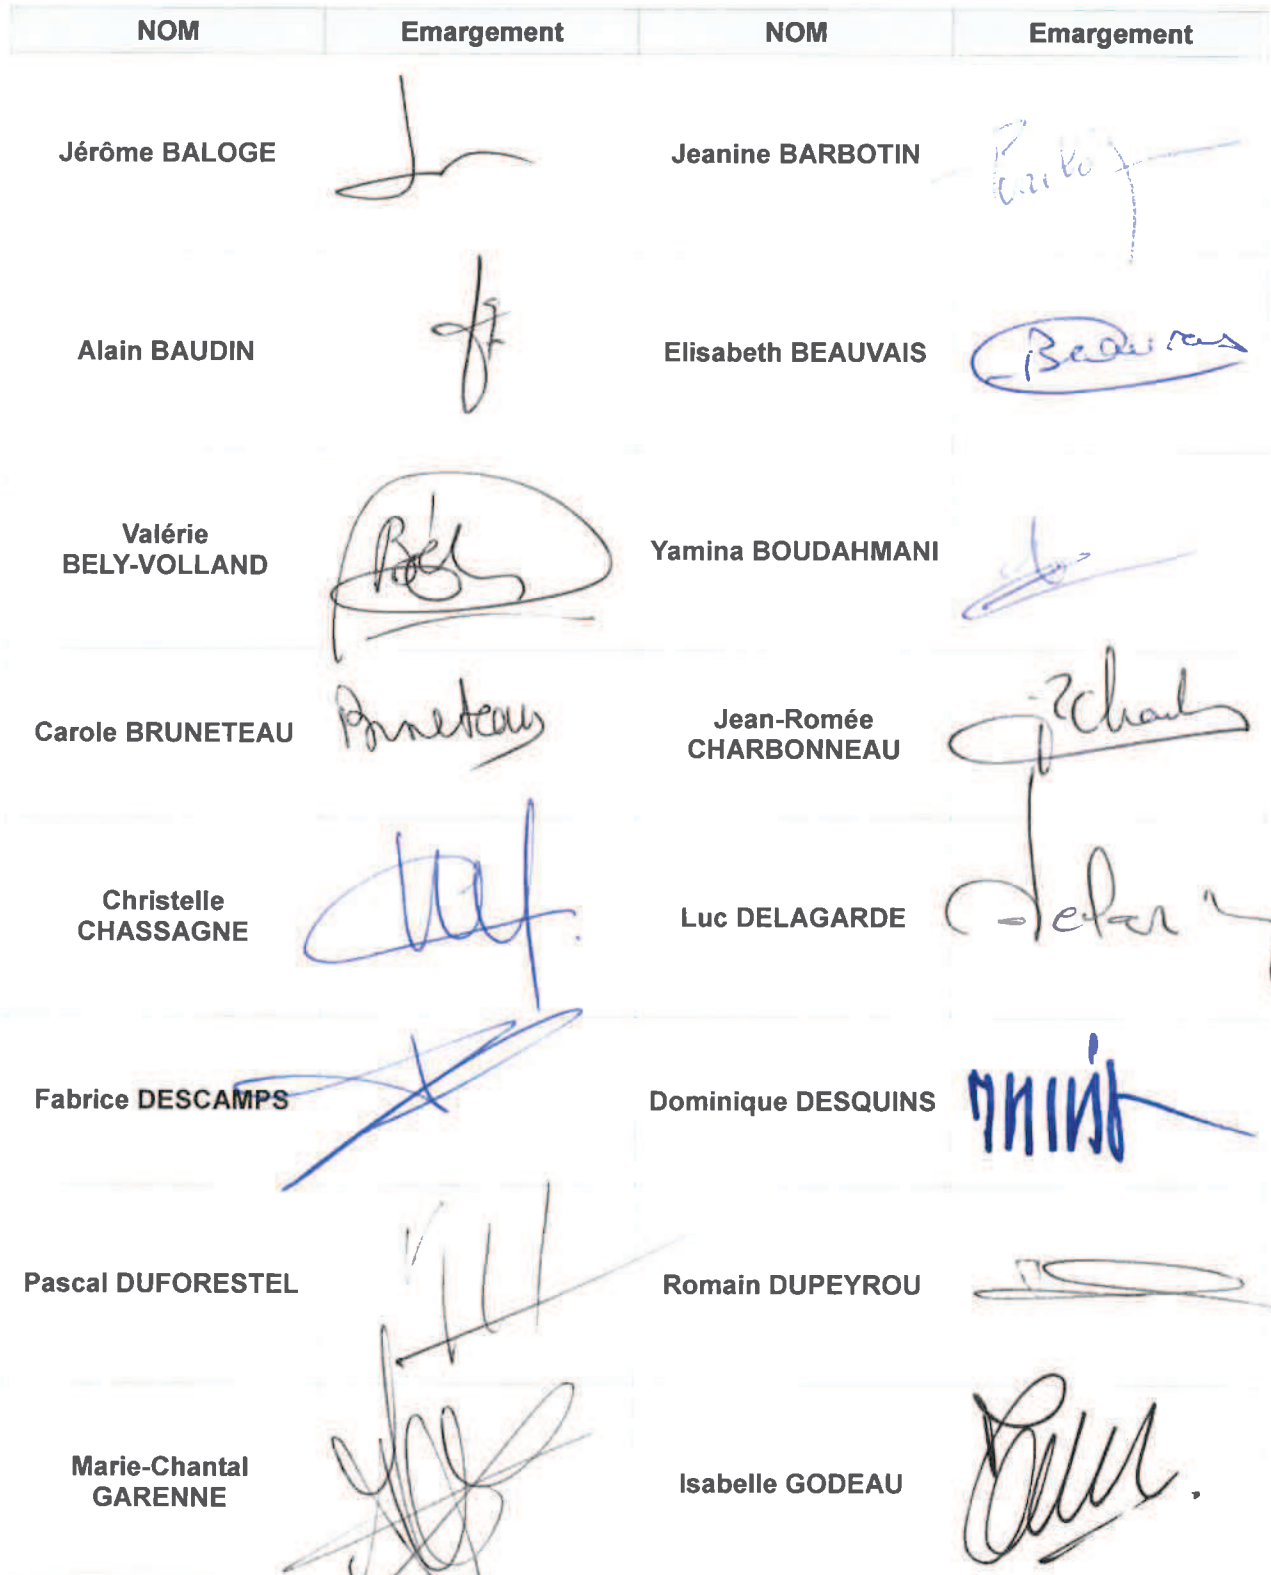 NOM Emargement NOM Emargement
Jérôme BALOGE Jeanine BARBOTIN
Alain BAUDIN Elisabeth BEAUVAIS
Beauvais
Valérie
BELY-VOLLAND
Yamina BOUDAHMANI
Bély
Carole BRUNETEAU
Bruneteau
Jean-Romée
CHARBONNEAU
Christelle
CHASSAGNE
Luc DELAGARDE
Fabrice DESCAMPS Dominique DESQUINS
Pascal DUFORESTEL Romain DUPEYROU
Marie-Chantal
GARENNE
Isabelle GODEAU